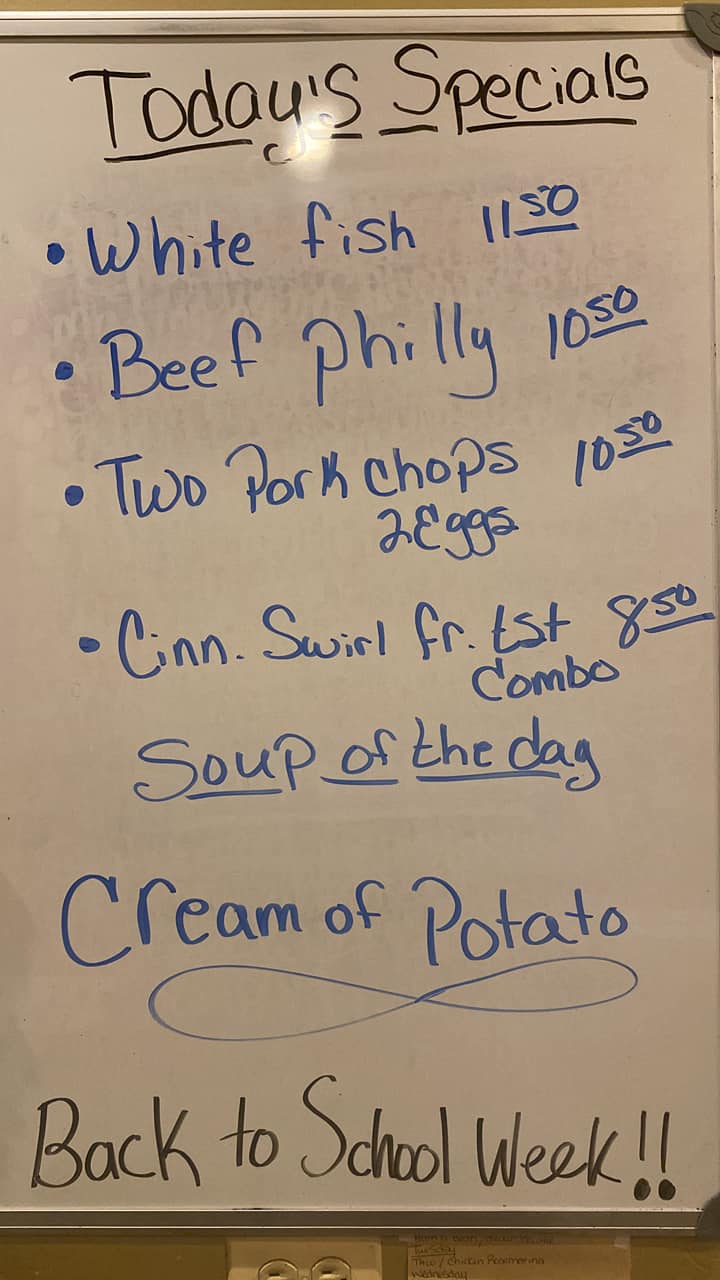 Today's Specials
• White fish 11 50
• Beef Philly 10 50
• Two Pork chops 10 50
2 Eggs
• Cinn. Swirl fr. tst 8 50
Combo
Soup of the day
Cream of Potato
Back to School Week!!
Tuesday
Wednesday